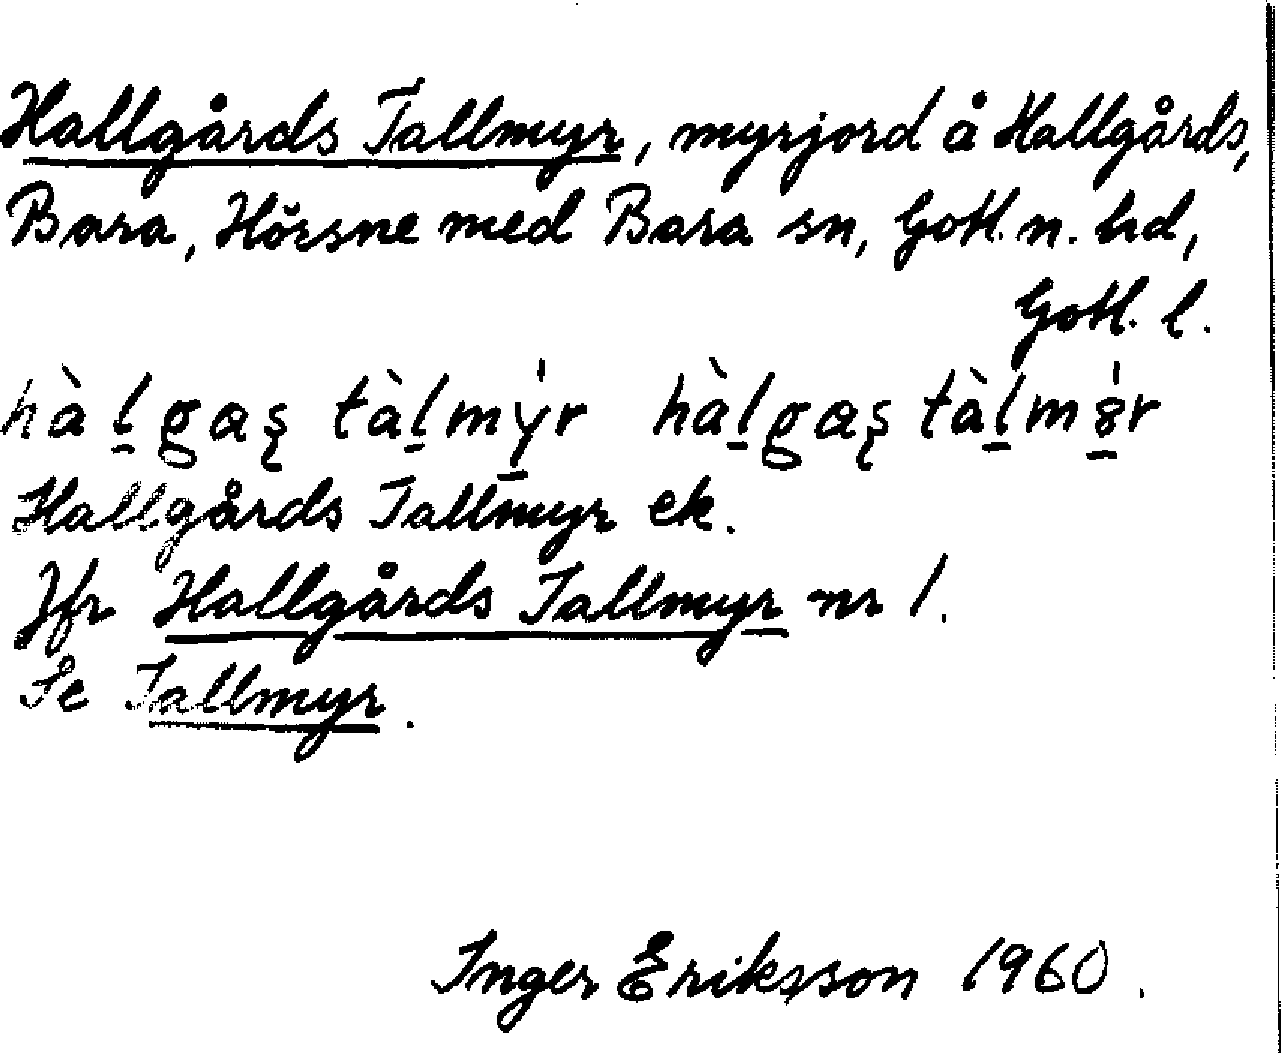 Hallgårds Tallmyr, myrjord å Hallgårds,
Bara, Hörsne med Bara sn, Gotl. n. hd,
Gotl. l.
hàl̲gaş tàl̲mý̲r hàl̲gaş tàl̲m8̲́r
Hallgårds Tallmyr ek.
Jfr Hallgårds Tallmyr nr 1.
Se Tallmyr.
Inger Eriksson 1960.